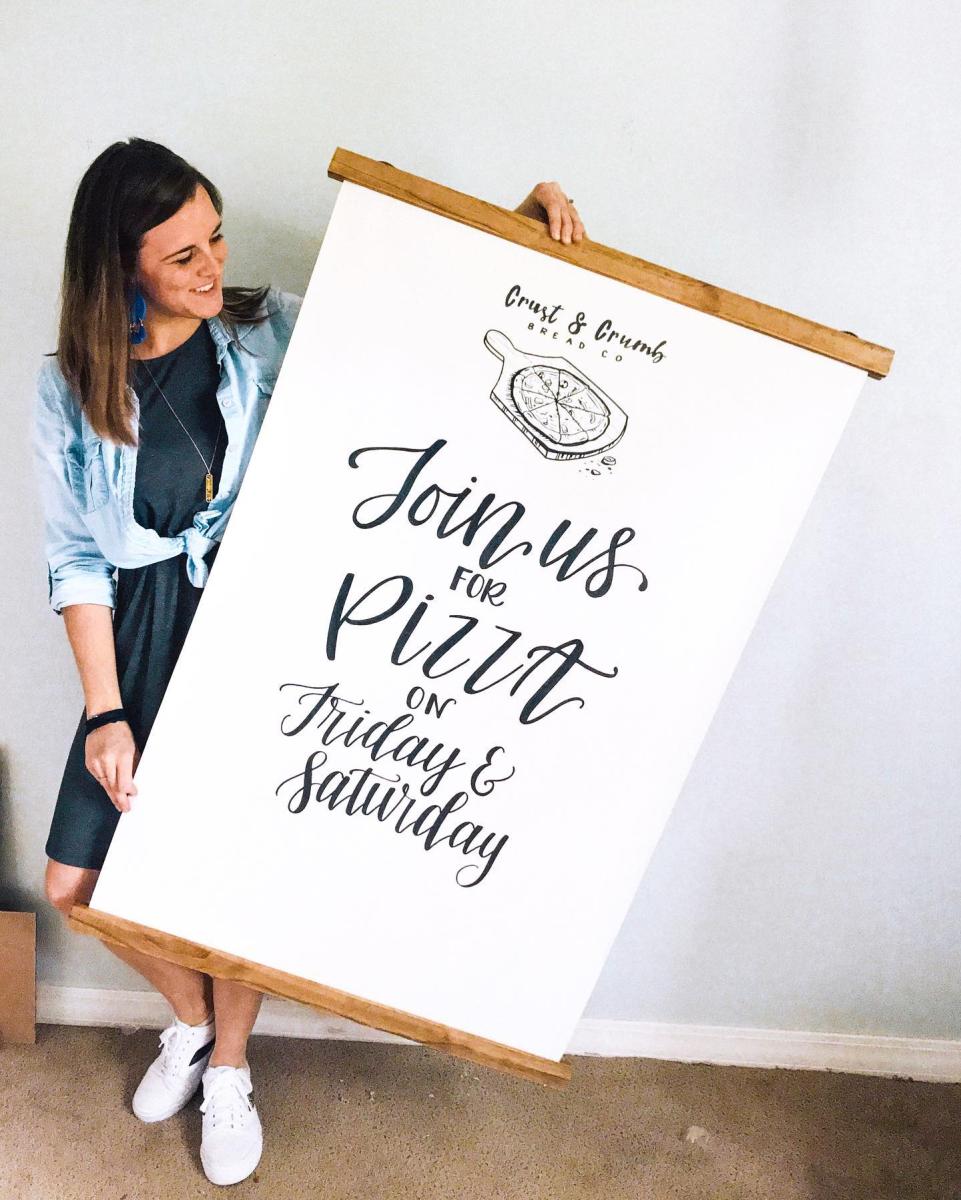 Crust & Crumb
BREAD CO
Join us
FOR
PizzA
ON
Friday &
Saturday